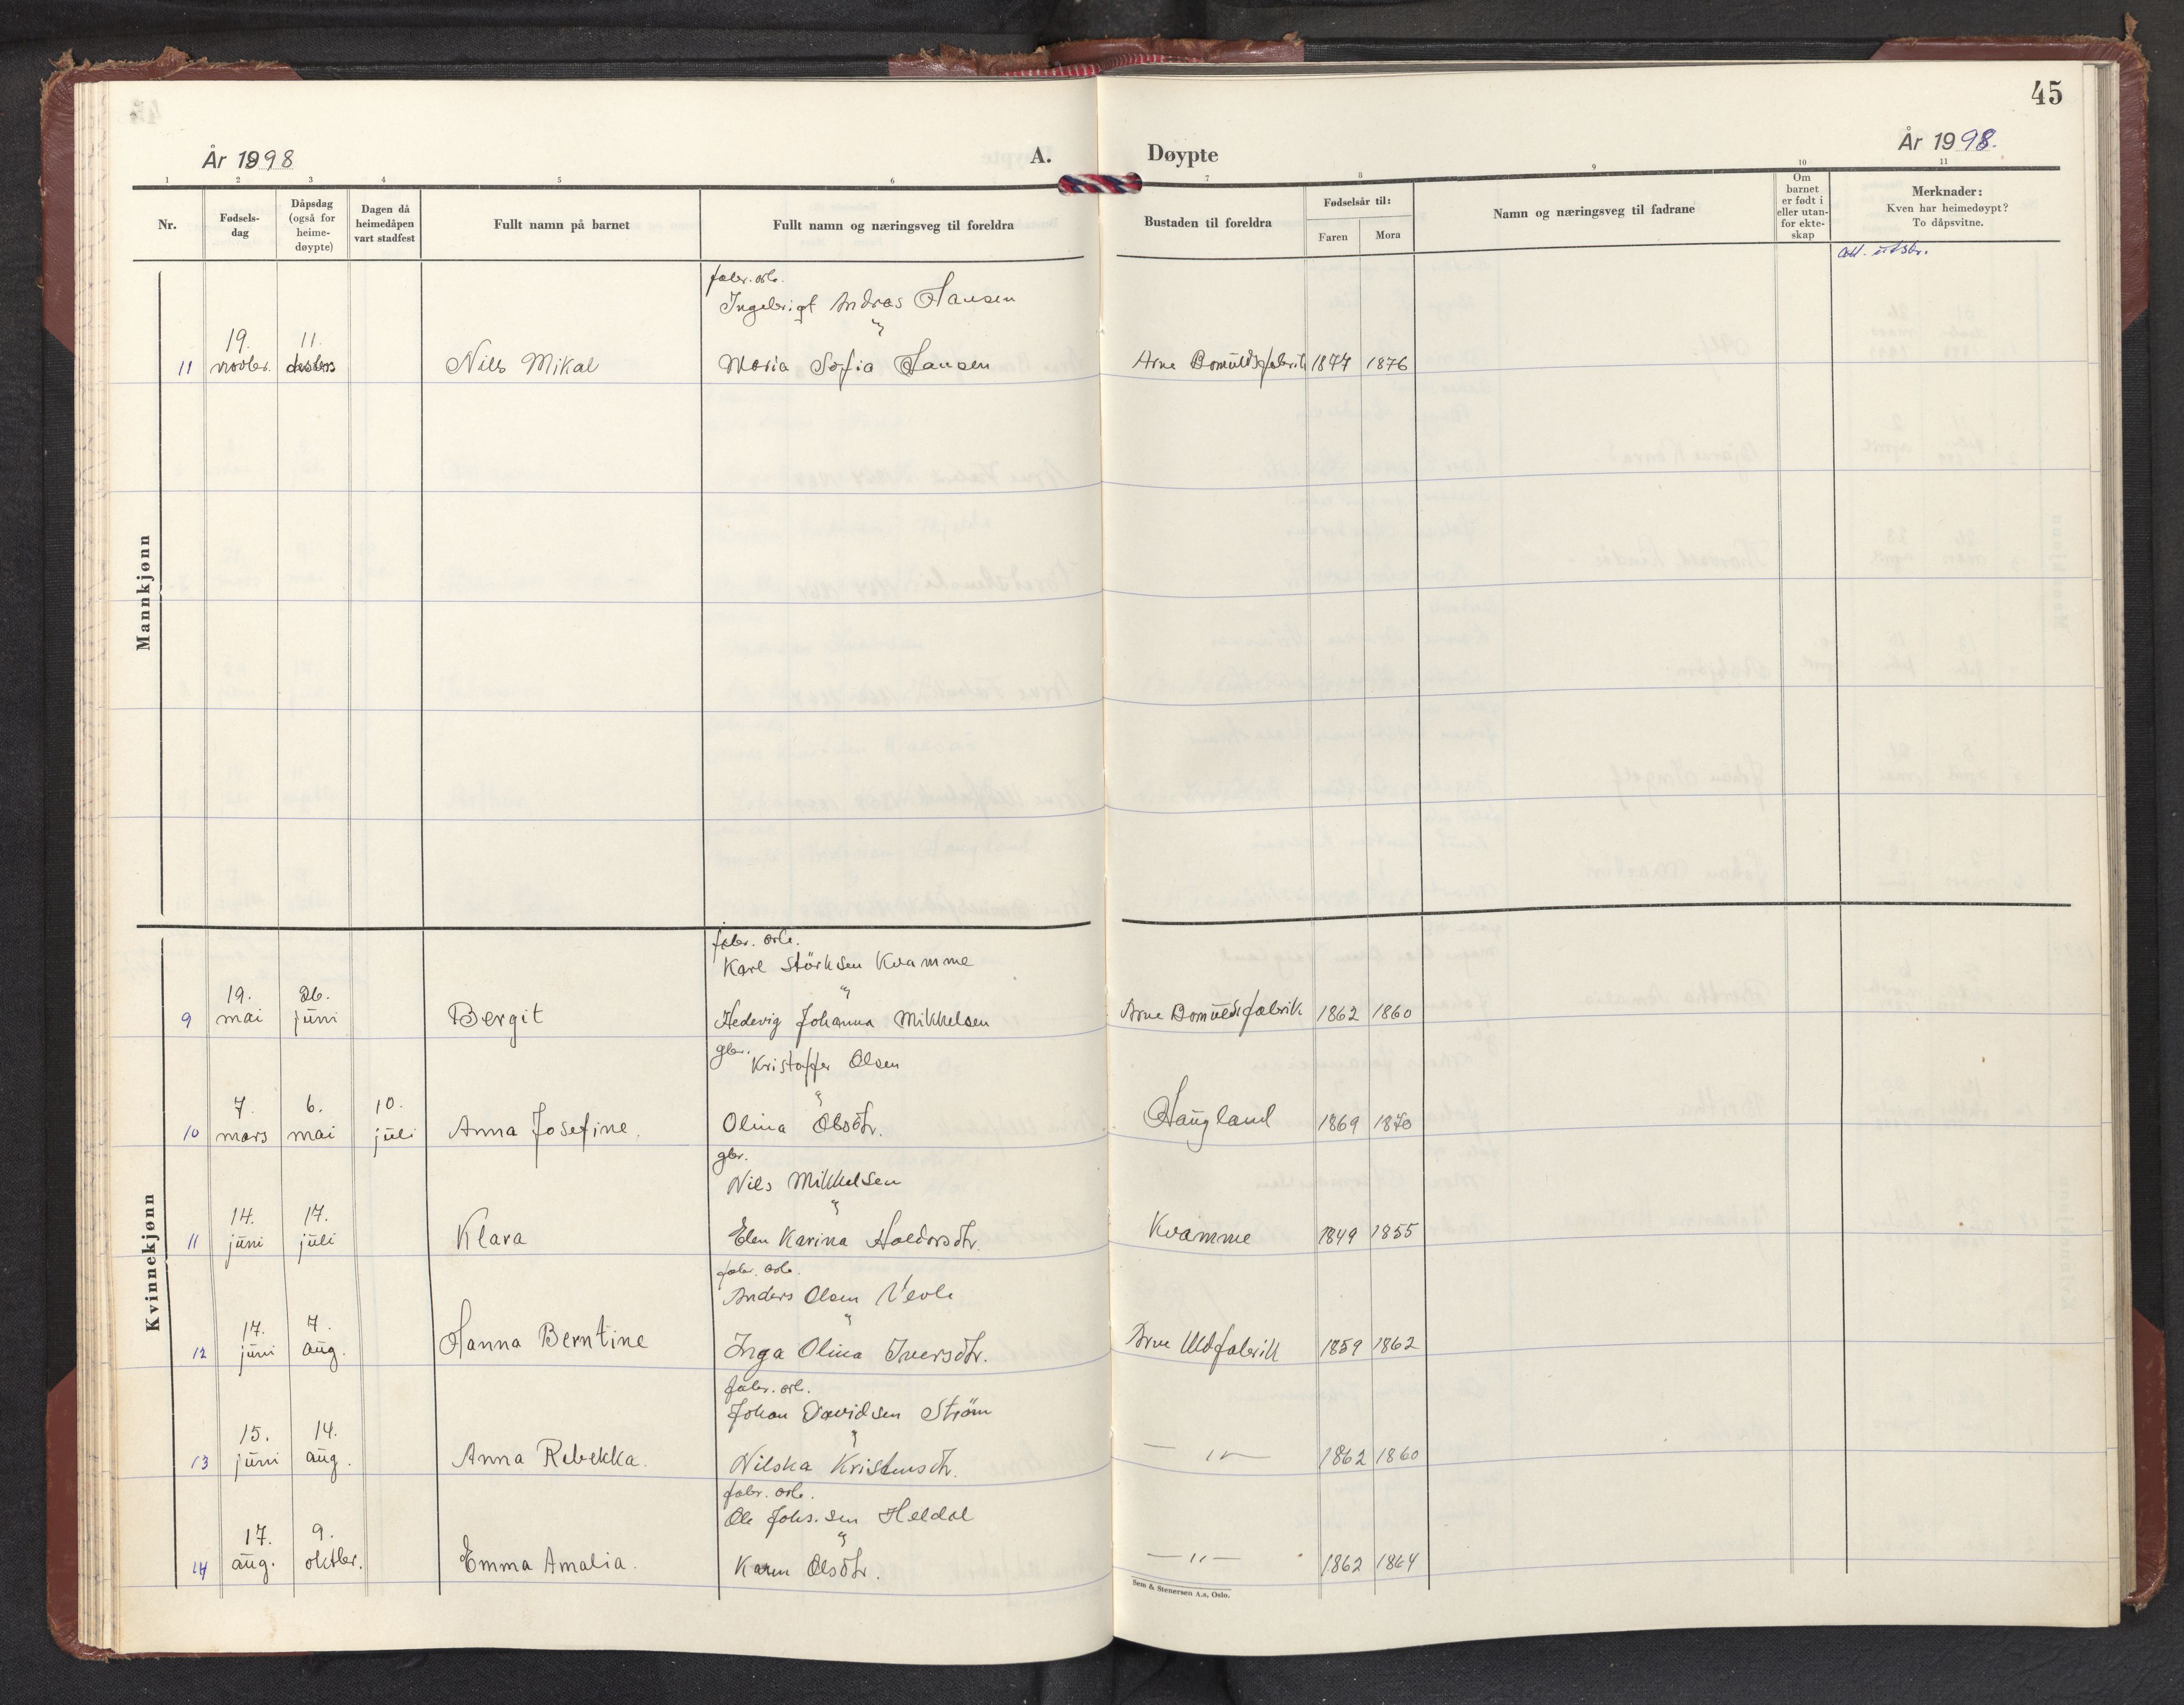 45
År 1898
A.
Døypte
År 1998.
1 2 3 4 5 6 7 8 9 10 11
Nr.
Fødsels-
dag
Dåpsdag
(også for
heime-
døypte)
Dagen då
heimedåpen
vart stadfest
Fullt namn på barnet
Fullt namn og næringsveg til foreldra
Bustaden til foreldra
Fødselsår til:
Faren Mora
Namn og næringsveg til fadrane
Om
barnet
er født i
eller utan-
for ekte-
skap
Merknader:
Kven har heimedøypt?
To dåpsvitne.
Mannkjønn
fabr. arb.
Ingebrigt Andras Hansen
19. 11. "
11 novbr. Nils Mikal Maria Sofia Hansen Arne Bomuldsfabrik 1877 1876
Kvinnekjønn
fabr. arb.
Karl Störksen Kvamme
19. 26. "
9 mai juni Bergit Hedevig Johanna Mikkelsen Arne Bomuldsfabrik 1862 1860
gbr. Kristoffer Olsen
7. 6. 10. "
10 mars mai juli Anna Josefine. Olina Olsdtr. Haugland 1869 1870
gbr.
Nils Mikkelsen
14. 17. "
11 juni juli Klara Elen Karina Haldorsdtr. Kvamme 1849 1855
fabr. arb.
Anders Olsen Vevle
17. 7. "
12 juni aug. Hanna Berntine Inga Olina Iversdtr. Arne Uldfabrik 1859 1862
fabr. arb.
Johan Davidsen Ström
15. 14. "
13 juni aug. Anna Rebekka. Nilska Kristensdtr. — " — 1862 1860
fabr. arb.
Ole Johs.sen Heldal
17. 9. "
14 aug. oktbr. Emma Amalia. Karen Olsdtr. — " — 1862 1864
Sem & Stenersen A.s, Oslo.